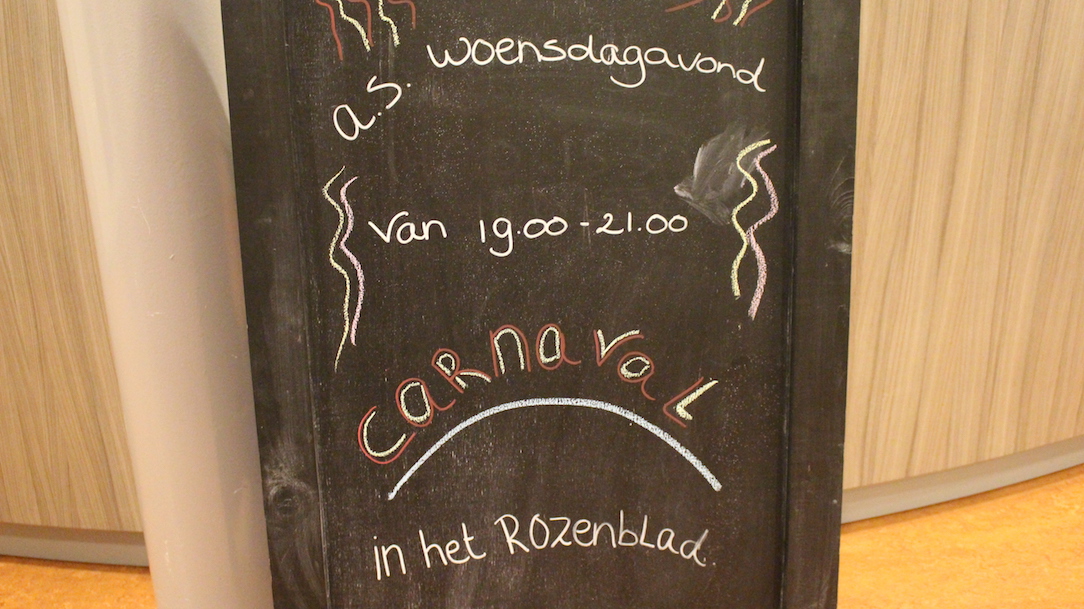 a.s. woensdagavond
van 19.00 - 21.00
carnaval
in het Rozenblad.